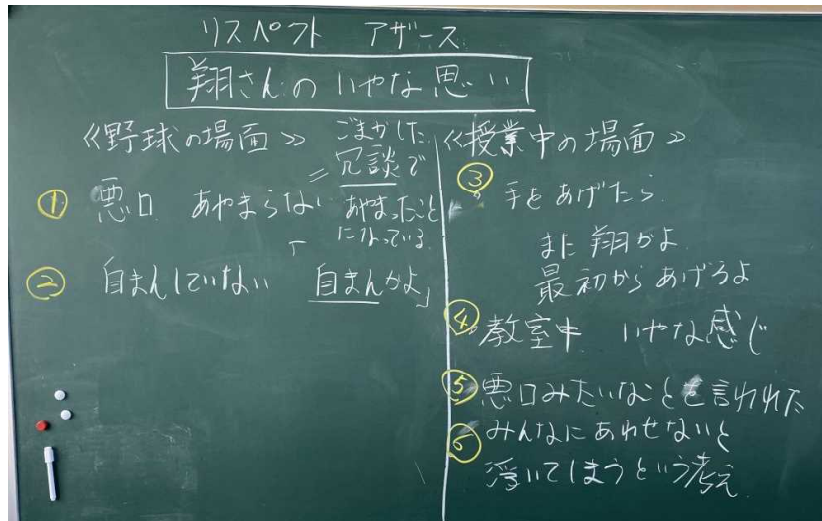 リスペクト アザース
翔さんのいやな思い
≪野球の場面≫
① 悪口 あやまらない
ごまかした
=冗談で
あやまったこと
になっている
② 自まんしていない 「自まんかよ」
≪授業中の場面≫
③ 手をあげたら
また翔かよ
最初からあげろよ
④ 教室中 いやな感じ
⑤ 悪口みたいなことを言われた
⑥ みんなにあわせないと
浮いてしまうという考え